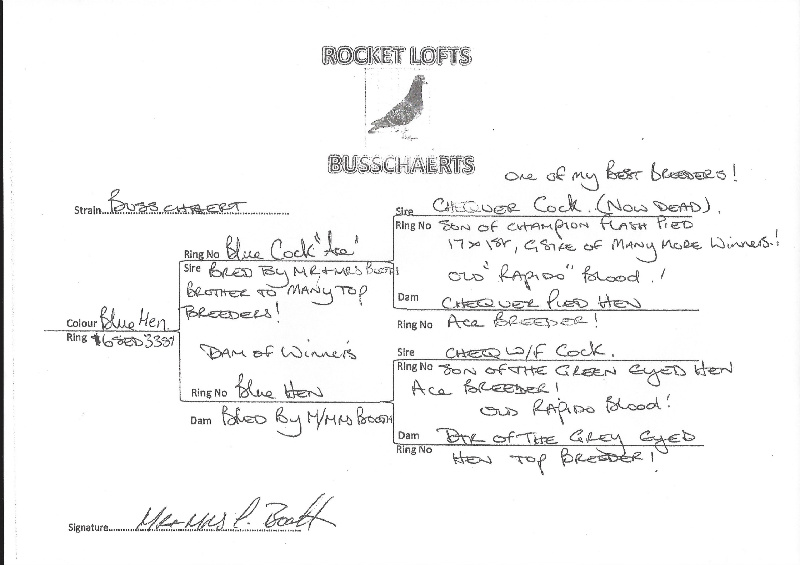 ROCKET LOFTS
BUSSCHAERTS
One of my BEST BREEDERS!
Strain BUSSCHAERT
Sire CHEQUER COCK. (NOW DEAD).
Ring No SON OF CHAMPION FLASH PIED
17 x 1ST, GSIRE OF MANY MORE WINNERS!
OLD "RAPIDO" BLOOD!
Dam CHEQUER PIED HEN
Ring No ACE BREEDER!
Ring No Blue Cock "Ace"
Sire BRED BY MR + MRS BOOTH
BROTHER TO MANY TOP
BREEDERS!
Colour Blue Hen.
Ring
DAM OF WINNERS
Ring No Blue HEN
Dam BRED BY M/MRS BOOTH
Sire CHEQ W/F COCK.
Ring No SON OF THE GREEN EYED HEN
ACE BREEDER!
OLD RAPIDO BLOOD!
Dam DTR OF THE GREY EYED
Ring No HEN TOP BREEDER!
Signature Mr + Mrs P. Booth